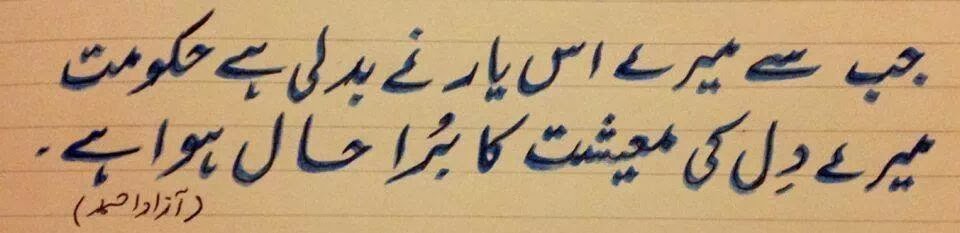 جب سے میرے اس یار نے بدلی ہے حکومت
میرے دِل کی معیشت کا بُرا حال ہوا ہے۔
(آزاد احمد)